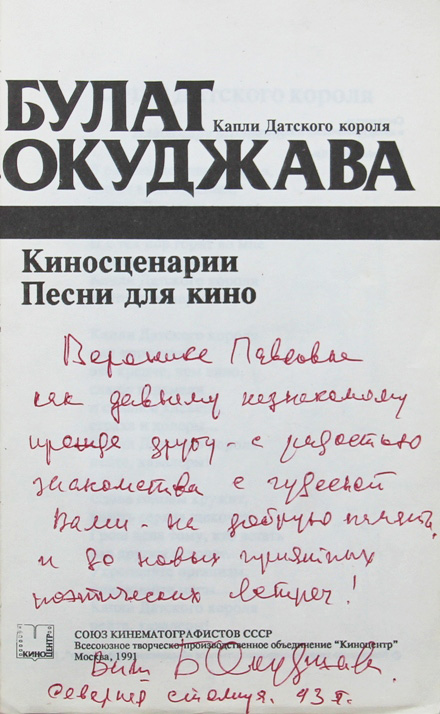 БУЛАТ
Капли Датского короля
ОКУДЖАВА
Киносценарии
Песни для кино
Веронике Павловне
как давнему незнакомому
прежде другу - с радостью
знакомства с чудесной
Вами - на добрую память,
и до новых приятных
поэтических встреч!
КИНО ЦЕНТР
СОЮЗ КИНЕМАТОГРАФИСТОВ СССР
Всесоюзное творческо-производственное объединение "Киноцентр"
Москва, 1991
Ваш Б Окуджава.
Северная столица. 93 г.